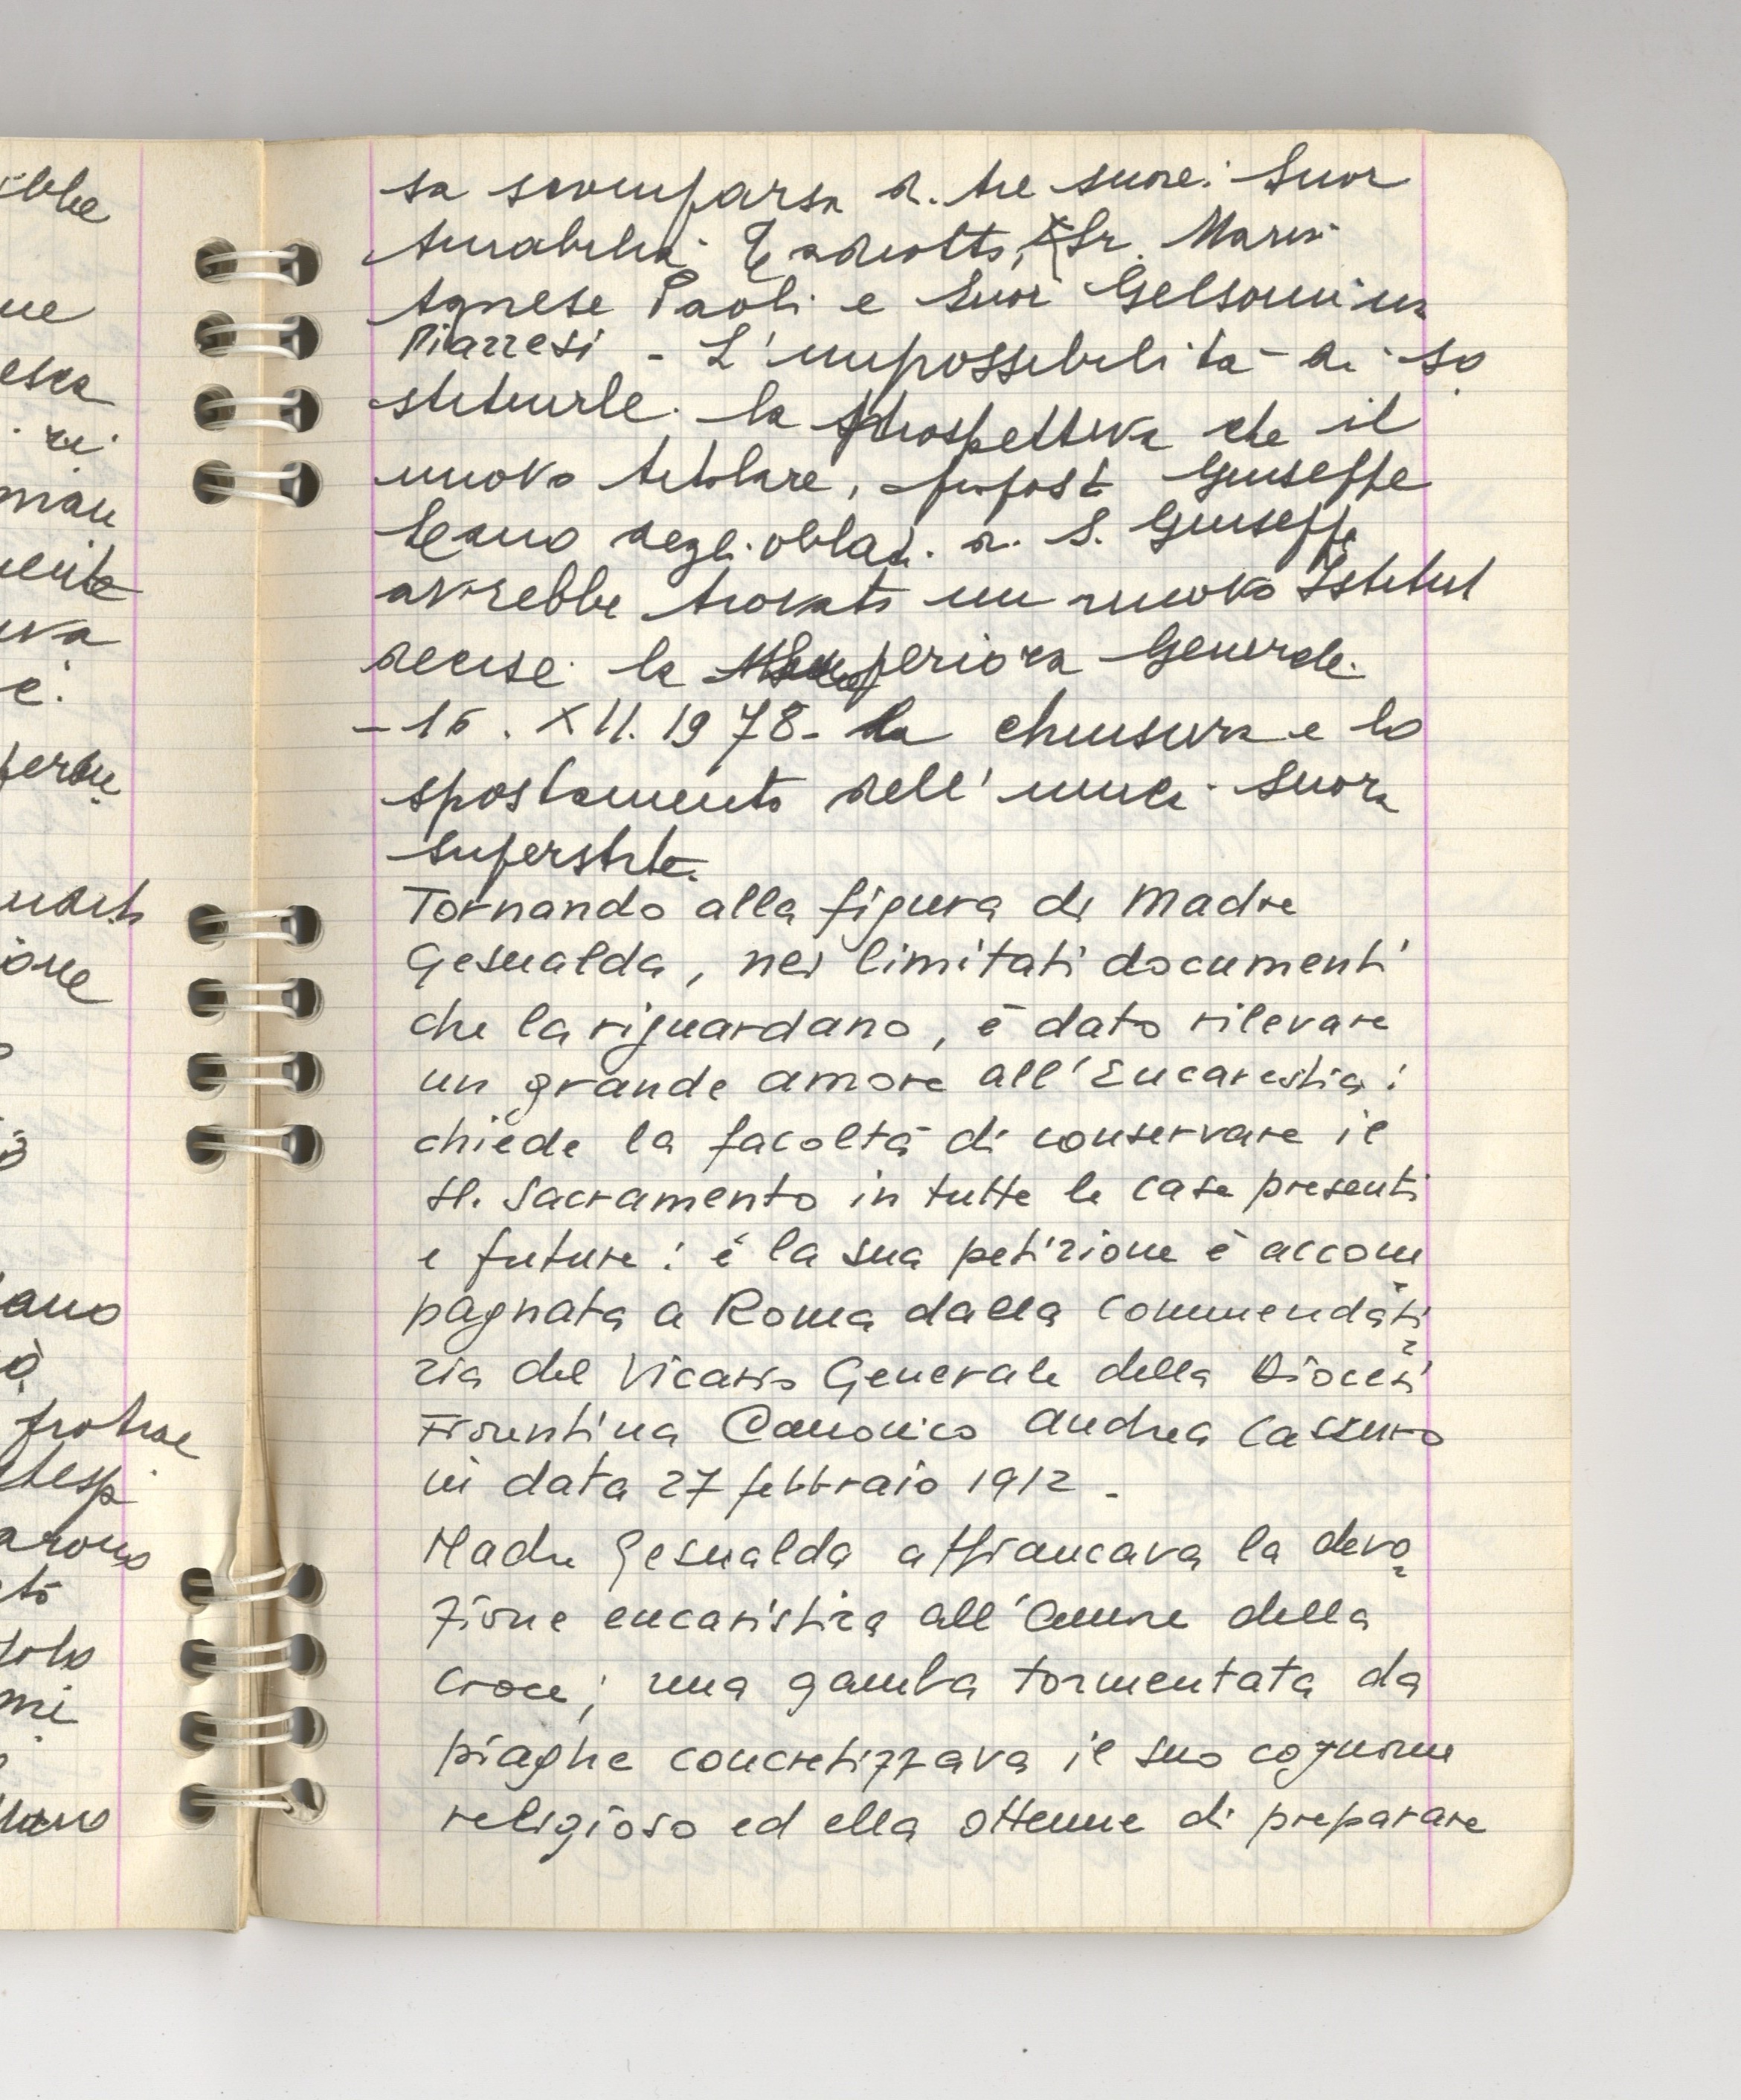 sa scomparsa di tre suore: Suor
Amabilia Sr. Maria
Agnese Paoli e Suor Gelsomina
Piazzesi - L'impossibilità di so
stituirle. la prospettiva che il
nuovo titolare, Giuseppe
degli oblati di S. Giuseppe
avrebbe trovato un nuovo Istitut
decise la Superiora Generale
- 16. XII. 1978 - la chiusura e lo
spostamento dell'unica Suora
superstite.
Tornando alla figura di Madre
Gesualda, nei limitati documenti
che la riguardano, è dato rilevare
un grande amore all'Eucarestia:
chiede la facoltà di conservare il
SS. Sacramento in tutte le case presenti
e future: e la sua petizione è accom
pagnata a Roma dalla commendati
zia del Vicario Generale della Diocesi
Fiorentina Canonico Andrea Cassulo
in data 27 febbraio 1912 -
Madre Gesualda affiancava la devo
zione eucaristica all'amore della
Croce; una gamba tormentata da
piaghe concretizzava il suo cognome
religioso ed ella ottenne di preparare